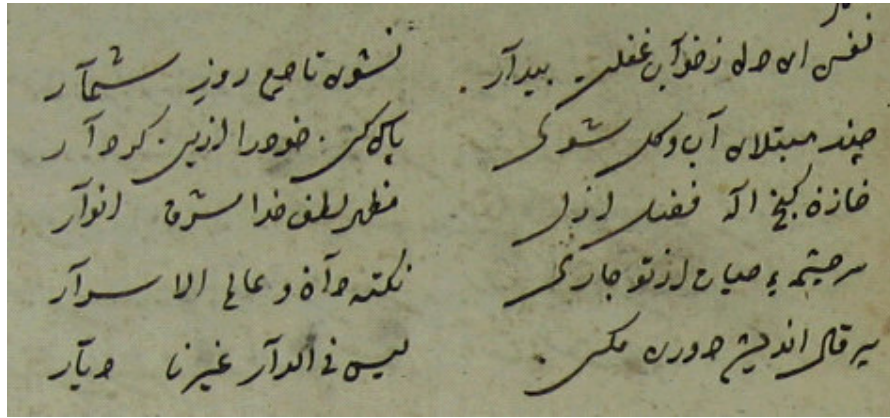 نفس ای دل ز خوآب غفلت بیدآر نشوی تا صبح روز شمآر
چند مبتلای آب و گل شوی پاک کن خود را ازین کردآر
گنج اله فضل ازل مظهر لطف خدا مشرق انوآر
سرچشمهٔ حیات از تو جاری نکته دآن و عالم الاسرآر
اندیشه دوری مکن لیس فی الدآر غیرنا دیآر